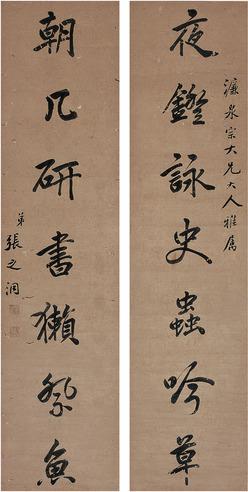 濂泉宗大兄大人雅属
夜鐙詠史蟲吟草
朝几研書獺祭魚
弟張之洞